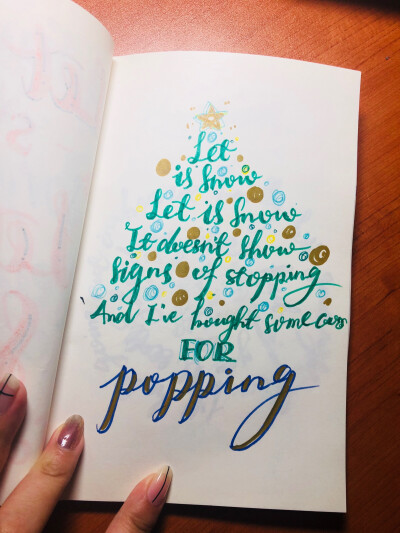 Let
is Snow
Let is Snow
It doesn't Show
Signs of stopping
And I've bought some corn
FOR
popping